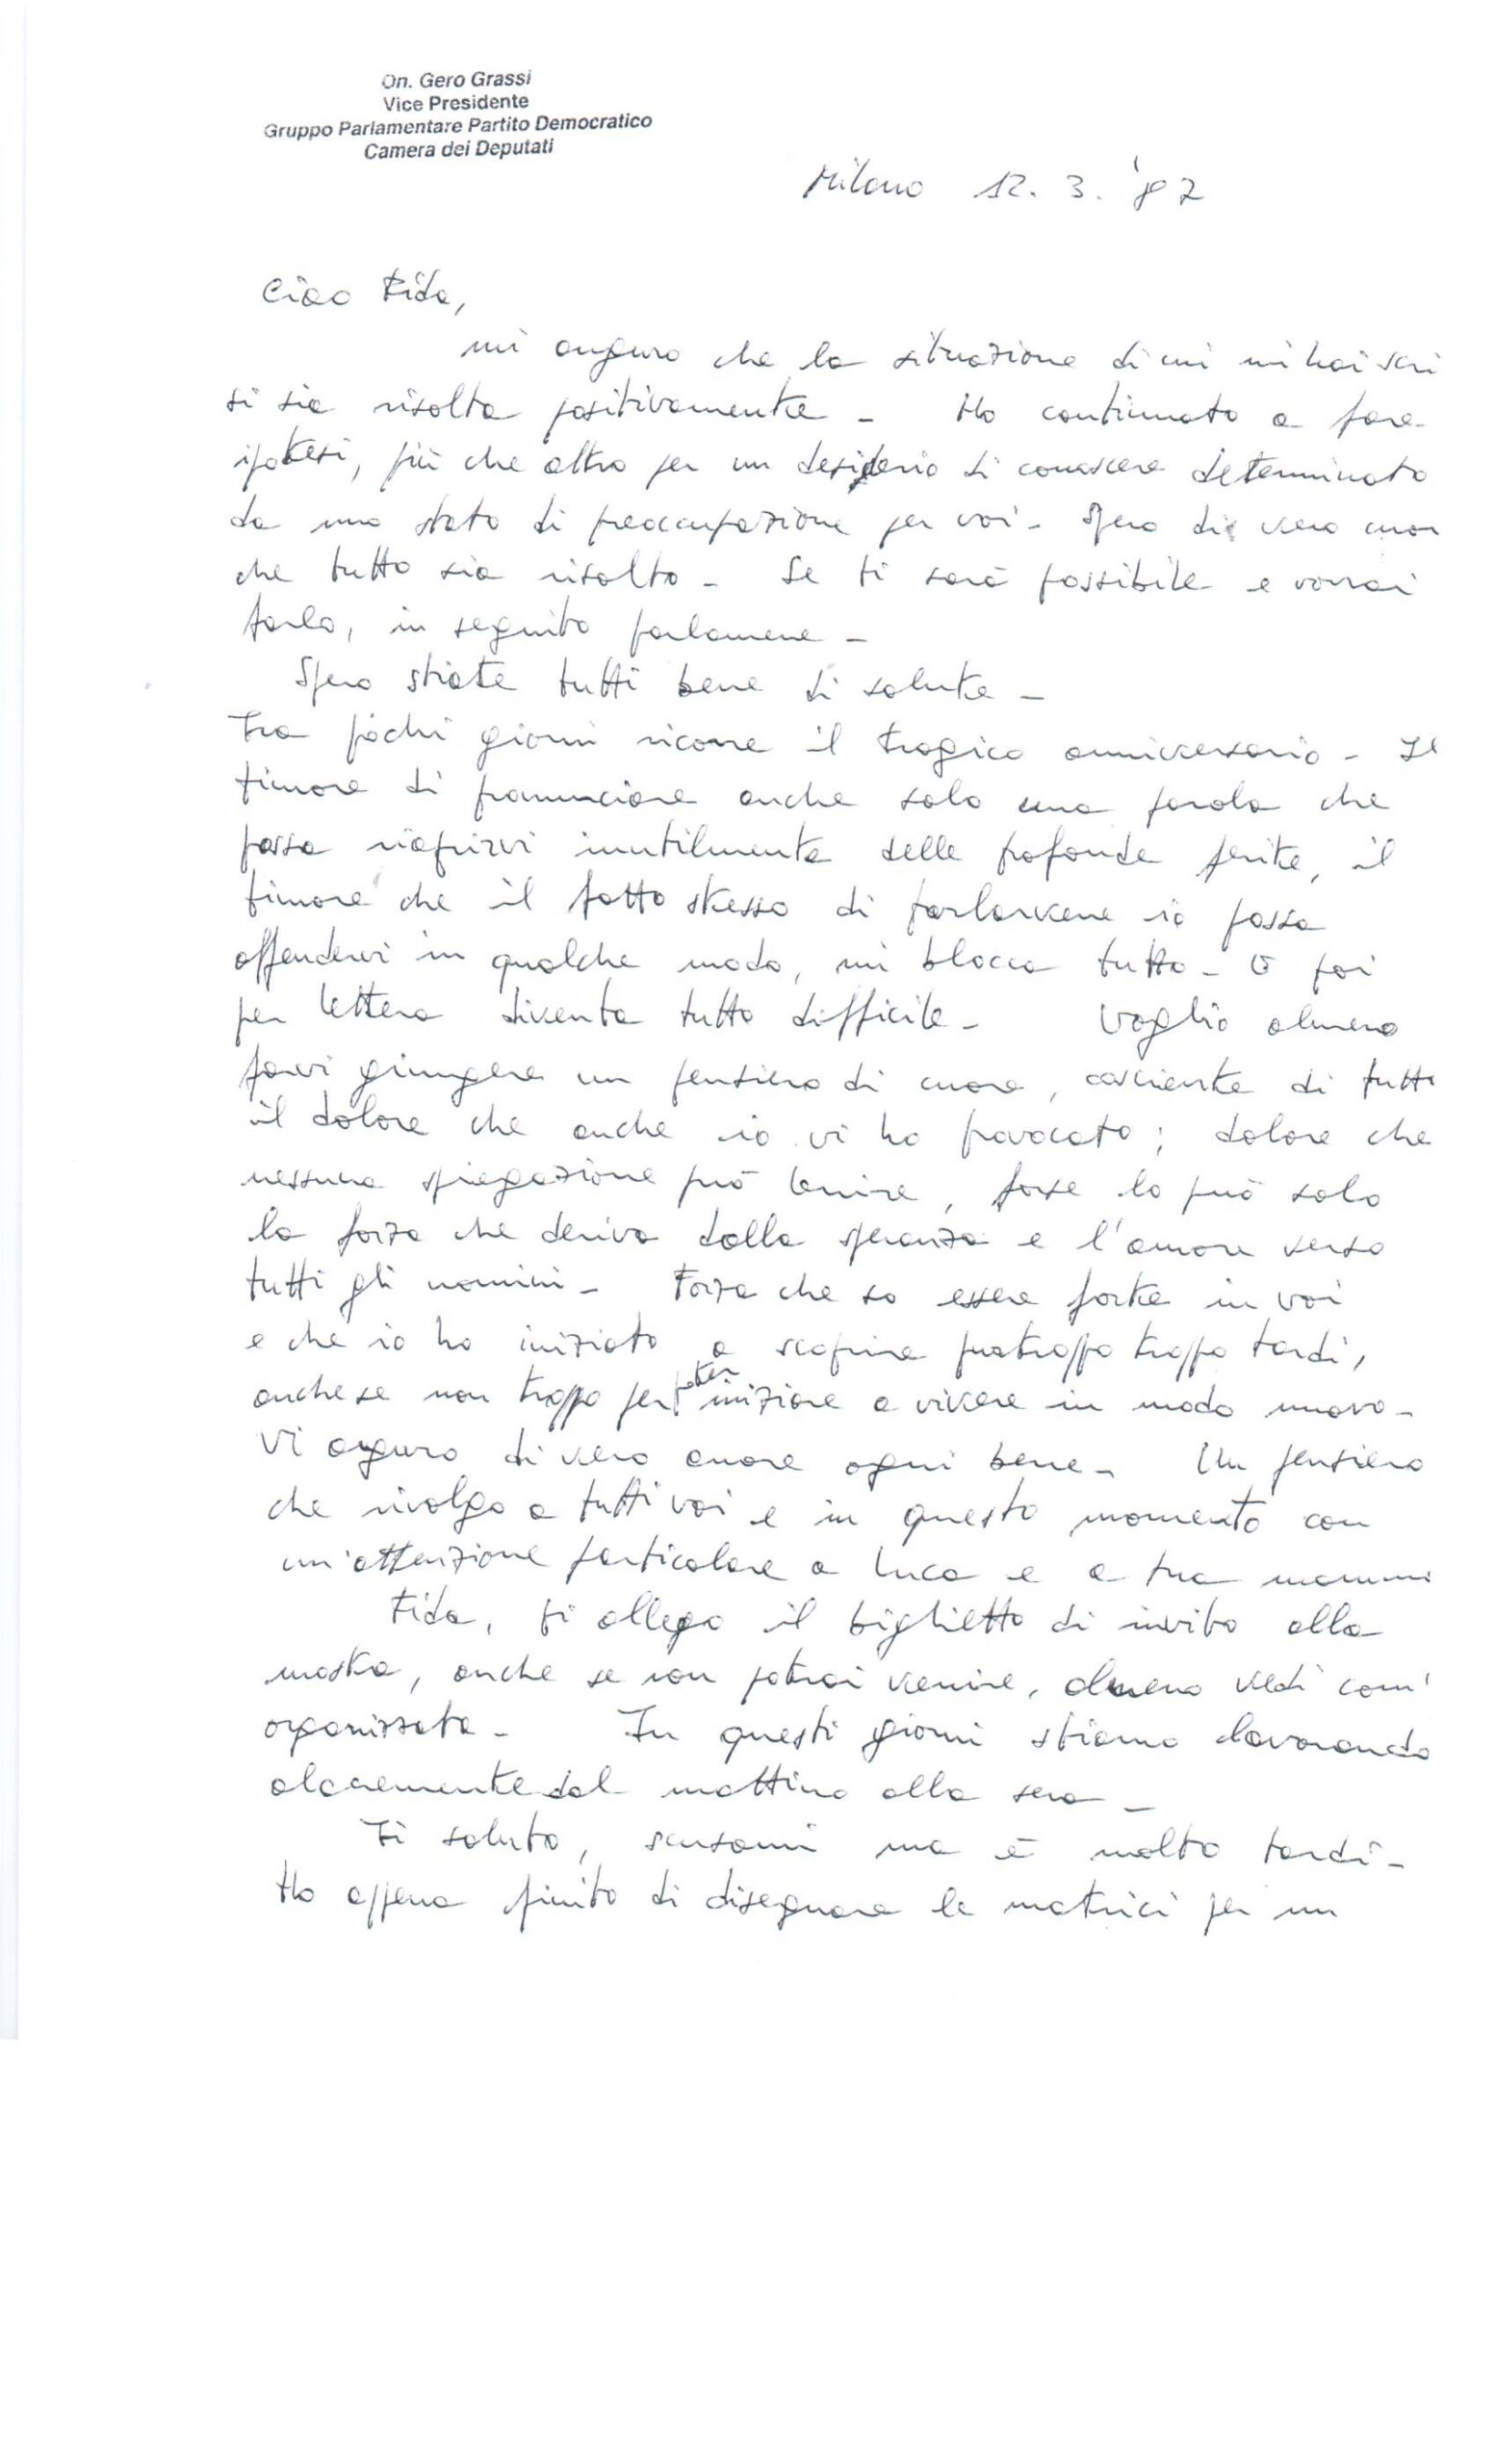 On. Gero Grassi
Vice Presidente
Gruppo Parlamentare Partito Democratico
Camera dei Deputati
Milano 12. 3. '87
Ciao Fida,
mi auguro che la situazione di cui mi hai scri
si sia risolta positivamente - Ho continuato a fare
ipotesi, più che altro per un desiderio di conoscere determinato
da uno stato di preoccupazione per voi - Spero di vero cuor
che tutto sia risolto - Se ti sarà possibile e vorrai
farlo, in seguito parlamene -
Spero stiate tutti bene di salute -
Tra pochi giorni ricorre il tragico anniversario - Il
timore di pronunciare anche solo una parola che
possa riaprirvi inutilmente delle profonde ferite, il
timore che il fatto stesso di parlarvene io possa
offendervi in qualche modo, mi blocca tutto - E poi
per lettera diventa tutto difficile - Voglio almeno
farvi giungere un pensiero di cuore, cosciente di tutto
il dolore che anche io vi ho provocato; dolore che
nessuna spiegazione può lenire, forse lo può solo
la forza che deriva dalla speranza e l'amore verso
tutti gli uomini - Forza che so essere forte in voi
e che io ho iniziato a scoprire purtroppo troppo tardi,
anche se non troppo per poter iniziare a vivere in modo nuovo -
Vi auguro di vero cuore ogni bene - Un pensiero
che rivolgo a tutti voi e in questo momento con
un'attenzione particolare a Luca e a tua mamm
Fida, ti allego il biglietto di invito alla
mostra, anche se non potrai venire, almeno vedi com'
organizzata - In questi giorni stiamo lavorando
alacremente dal mattino alla sera -
Ti saluto, scusami ma è molto tardi -
Ho appena finito di disegnare le matrici per un